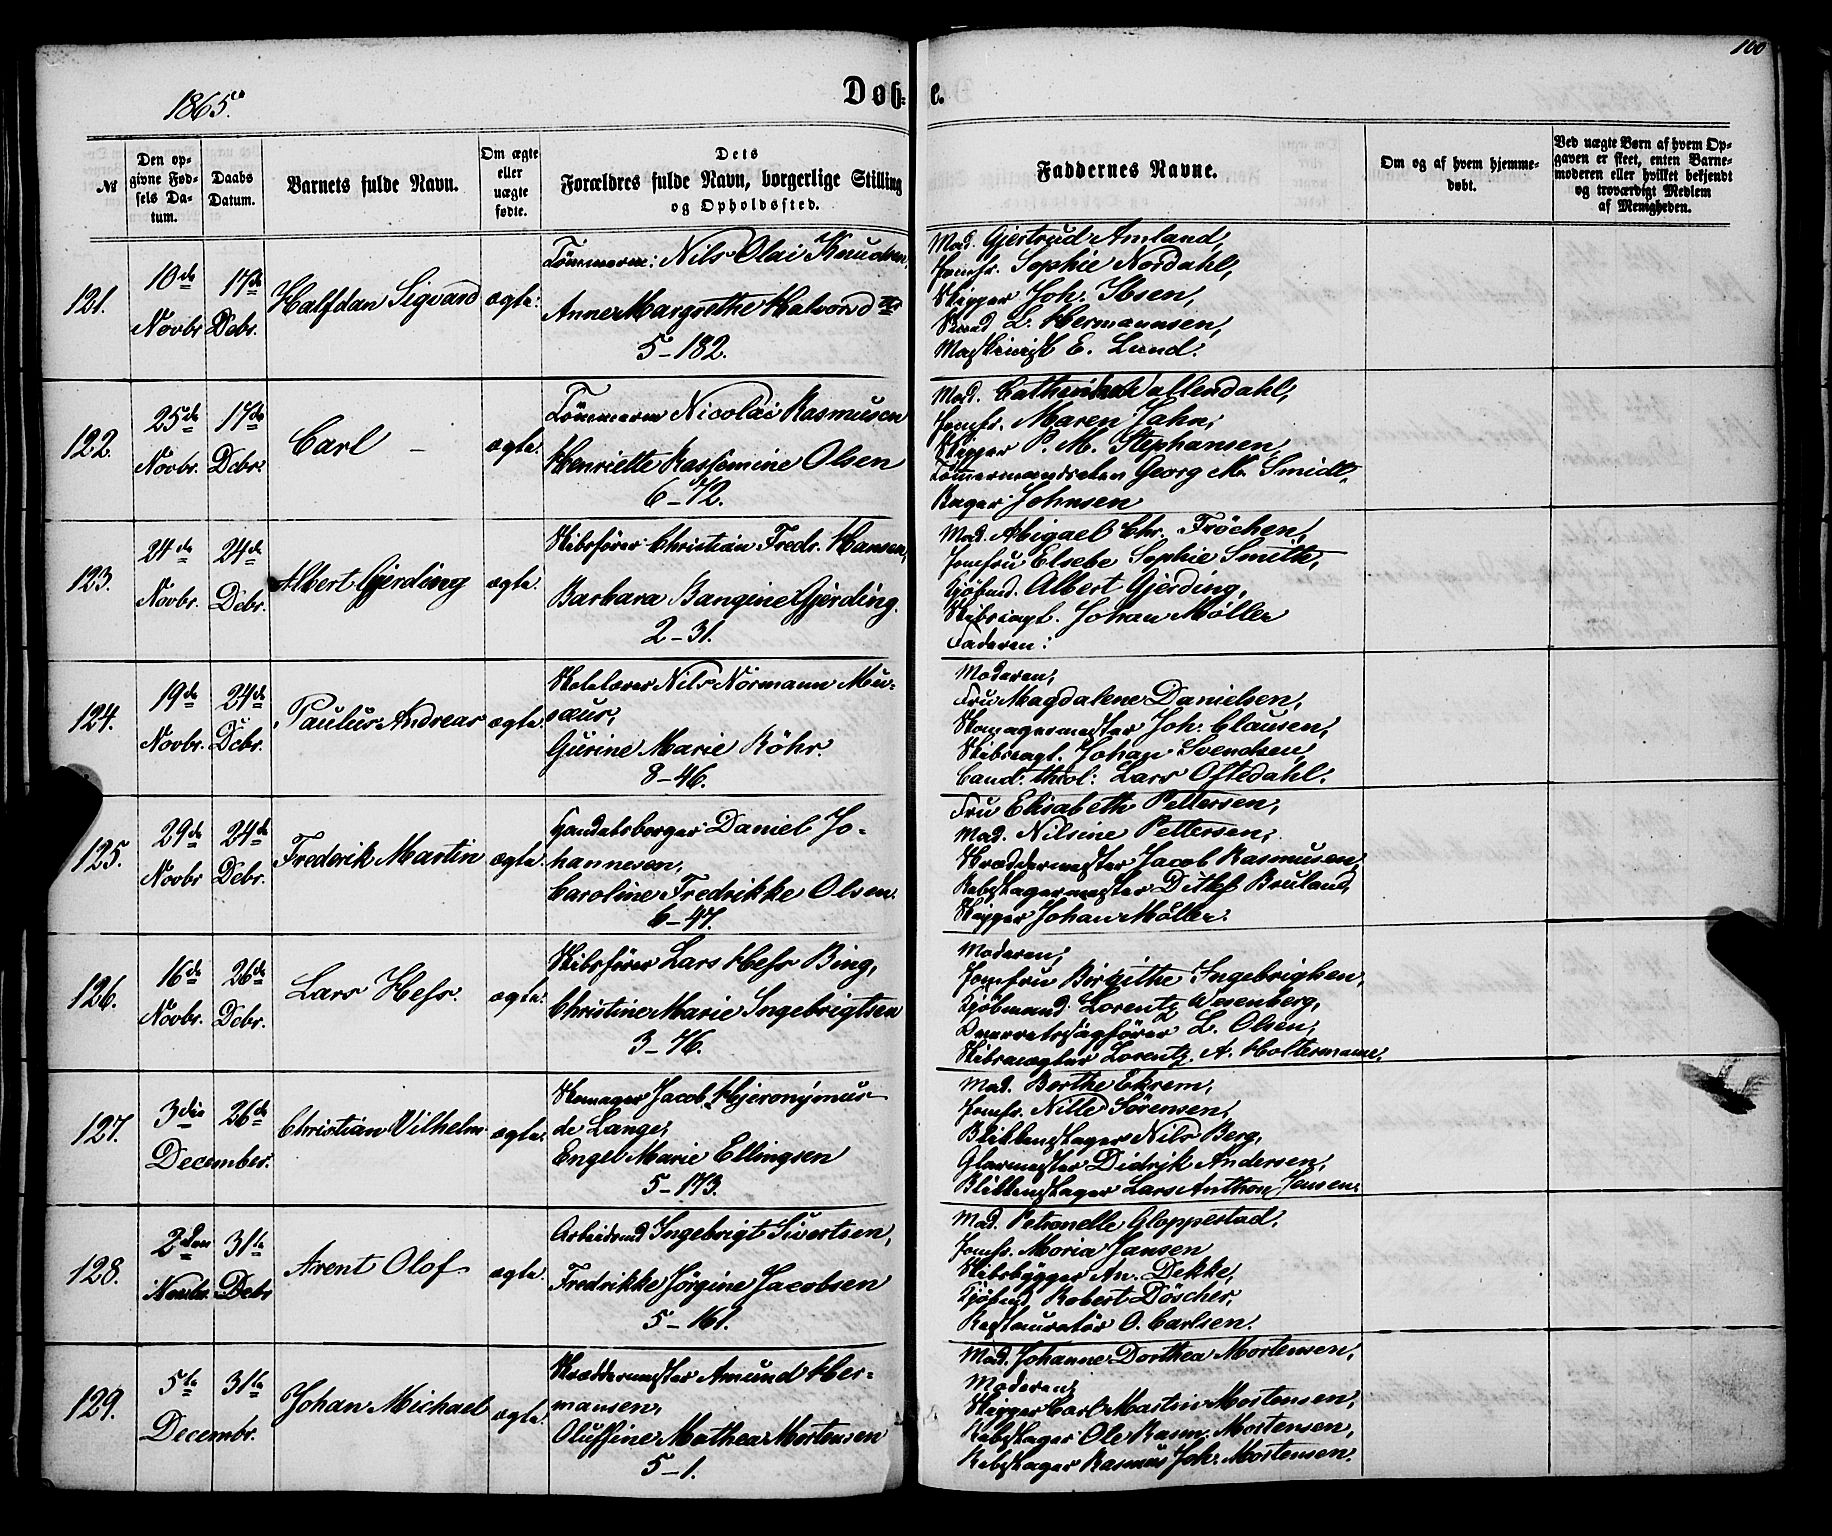 100
1865.
Døbte.
№
Den opgivne Fødsels Datum.
Daabs Datum.
Barnets fulde Navn.
Om ægte eller uægte fødte.
Dets Forældres fulde Navn, borgerlige Stilling og Opholdssted.
Faddernes Navne.
Om og af hvem hjemmedøbt.
Ved uægte Børn af hvem Opgaven er skeet, enten Barnemoderen eller hvilket bekjendt og troværdigt Medlem af Menigheden.
121.
10de Novbr
17de Dcbr.
Halfdan Sigvard
ægte.
Tømmerm: Nils Olai Knudsen,
Anne Margrethe Halvorsd
5-182.
Mad. Gjertrud Amland,
Jomfr. Sophie Nordahl,
Skipper Joh. Ibsen,
L. Hermannsen,
Maskinist E. Lund.
122.
25de Novbr.
17de Dcbr.
Carl -
ægte.
Tømmerm Nicolai Rasmusen
Henriette Rassemine Olsen
6-72.
Mad. Cathrine Wallendahl,
Jomfr. Maren Jahn,
Skipper P. M. Stephansen,
Tømmermandsvten Georg M. Smidt,
Bager Johnsen
123.
24de Novbr.
24de Dcbr.
Albert Gjerding
ægte.
Skibsfører Christian Fredr. Hansen,
Barbara Bangine Gjerding.
2-31.
Mad. Abigael Chr. Frøchen,
Jomfru Elsebe Sophie Smith,
Kjøbmd. Albert Gjerding,
Skibsrugt. Johan Møller
Faderen:
124.
19de Novbr.
24de Dcbr.
Paulus Andreas
ægte.
Skolelærer Nils Normann Mu-
sæus,
Gurine Marie Röhr.
8-46.
Moderen,
Fru Magdalene Danielsen,
Skomagermester Joh. Clausen,
Skibsrugt. Johan Svendsen,
Cand: theol: Lars Oftedahl.
125.
29de Novbr
24de Dcbr.
Frederik Martin
ægte.
Handelsborger Daniel Jo-
hannesen,
Caroline Fredrikke Olsen.
6-47.
Fru Elisabeth Pettersen,
Mad. Nilsine Pettersen,
Skræddermester Jacob Rasmusen,
Rebslagermester Ditlef Bruland,
Skipper Johan Møller.
126.
16de Novbr.
26de Dcbr.
Lars Hess.
ægte.
Skibsfører Lars Hess Bing,
Christine Marie Ingebrigtsen
3-76.
Moderen,
Jomfru Birgithe Ingebrigtsen,
Kjøbmand Lorentz Wesenberg,
Overretssagfører L. Olsen,
Skibsmægler Lorentz A. Holtermann.
127.
3die
26de
December.
Christian Vilhelm
ægte.
Skomager Jacob Hjeronymus
de Lange,
Engel Marie Ellingsen
5-173.
Mad. Berthe Ekrem,
Jomfr. Nille Sørensen,
Blikkenslager Nils Berg,
Glarmester Didrik Andersen,
Blikkenslager Lars Anthon Jansen.
128.
2den Novbr.
31te Dcbr
Arent Olof
ægte.
Arbeidsmd Ingebrigt Sivertsen,
Fredrikke Jørgine Jacobsen
5-161.
Mad. Petronelle Gloppestad,
Jomfr. Maria Jansen
Skibsbygger An. Dekke,
Kjøbmd Robert Döscher,
Restauratør O. Carlsen.
129.
5te
31te
Decembr.
Johan Michael
ægte.
Skræddermester Amund Her-
mansen,
Oluffine Mathea Mortensen
5-1.
Mad. Johanne Dorthea Mortensen,
Moderen,
Skipper Carl Martin Mortensen,
Rebslager Ole Rasm. Mortensen,
Rebslager Rasmus Joh. Mortensen.